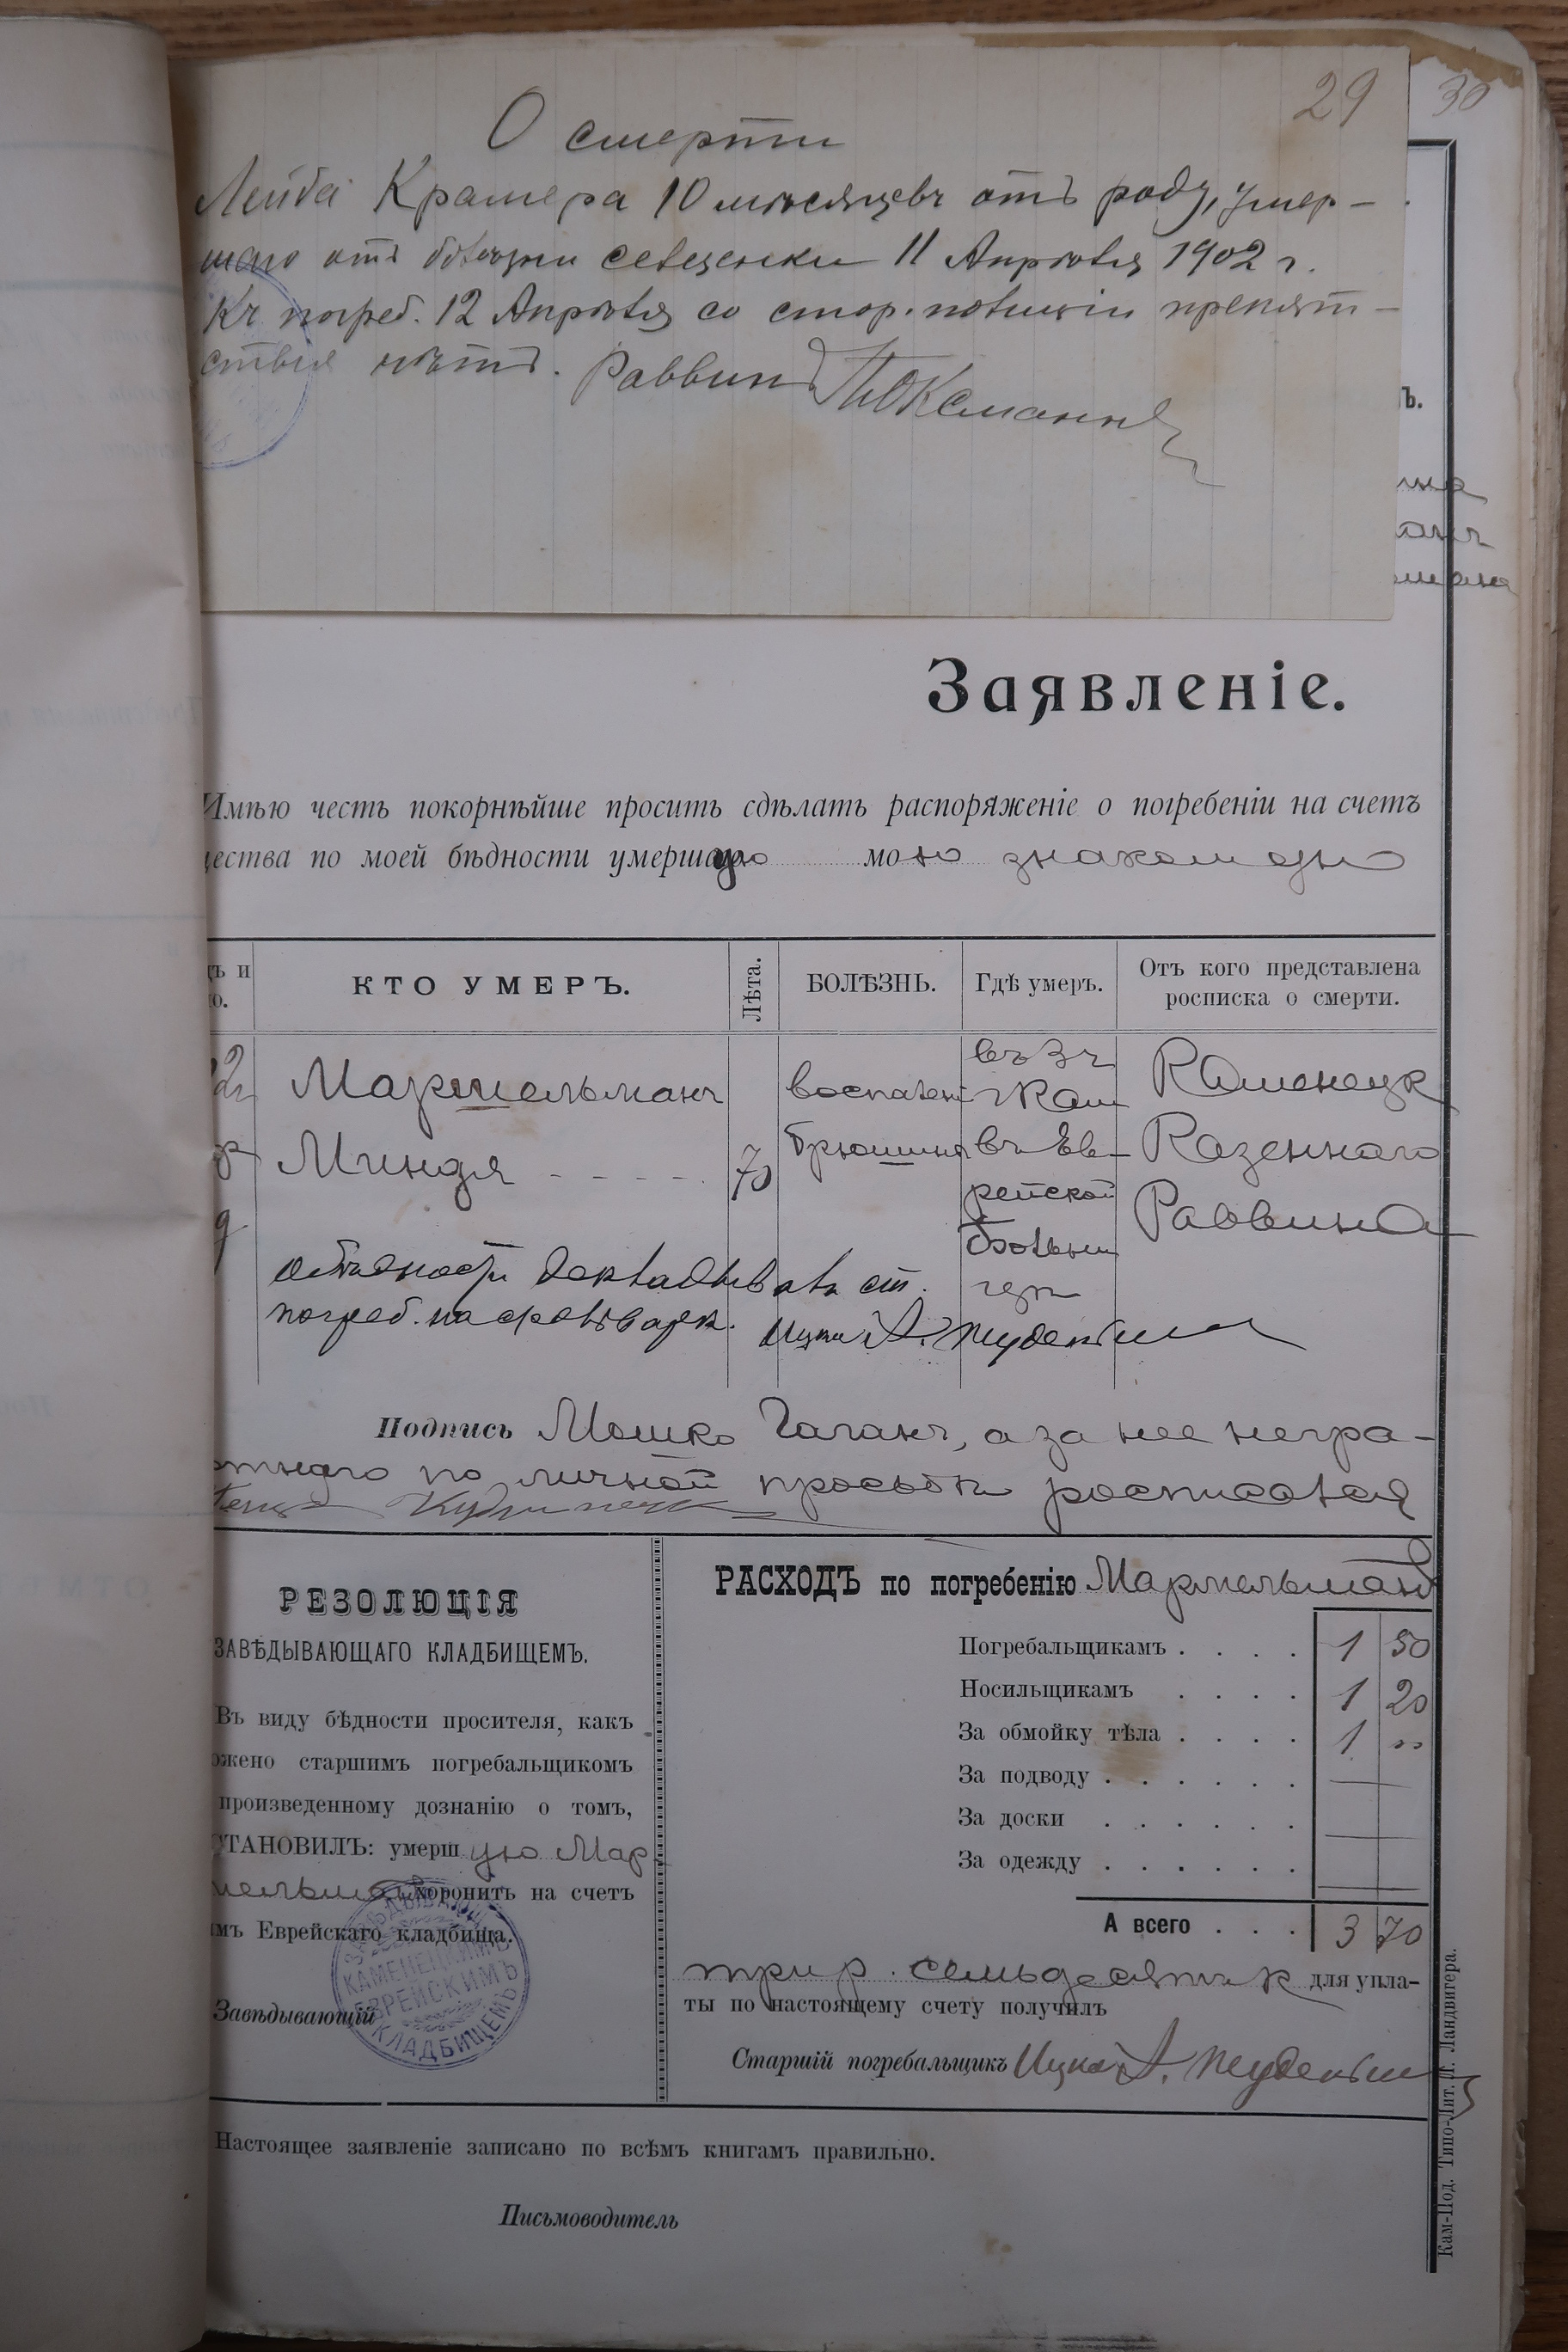 29
30
О смерти
Лейба Крамера 10 мѣсяцевъ отъ роду, умер-
шаго отъ болѣзни селезенки 11 Апрѣля 1902 г.
Къ погреб. 12 Апрѣля со стор. полиціи препят-
ствія нѣтъ. Раввинъ
ъ.
Заявленіе.
Имѣю честь покорнѣйше просить сдѣлать распоряженіе о погребеніи на счетъ
щества по моей бѣдности умершую мою знакомую
ъ и
о.
КТО УМЕРЪ.
Лѣта.
БОЛѢЗНЬ.
Гдѣ умеръ.
Отъ кого представлена
росписка о смерти.
2г
Мармельманъ
Миндя - - - - -
70
воспален
брюшины
въ
г Кам
въ Ев-
рейской
больни
цѣ
Каменецк
Казеннаго
Раввина
о бѣдности докладывалъ ст.
погреб. на фольварк. Ицко А.
Подпись Мошко Гаганъ, а за нее негра-
отнаго по личной просьбѣ росписался
РЕЗОЛЮЦІЯ
ЗАВѢДЫВАЮЩАГО КЛАДБИЩЕМЪ.
Въ виду бѣдности просителя, какъ
ожено старшимъ погребальщикомъ
произведенному дознанію о томъ,
ОСТАНОВИЛЪ: умершую Мар-
мельман хоронить на счетъ
мъ Еврейскаго кладбища.
Завѣдывающій
ЗАВѢДЫВАЮЩ
КАМЕНЕЦКИМЪ
ЕВРЕЙСКИМЪ
КЛАДБИЩЕМЪ
РАСХОДЪ по погребенію Мармельманъ
Погребальщикамъ . . . . 1 50
Носильщикамъ . . . . 1 20
За обмойку тѣла . . . . 1 "
За подводу . . . . . . —
За доски . . . . . . —
За одежду . . . . . . —
А всего . . . 3 70
три р. семьдесятъ к для упла-
ты по настоящему счету получилъ
Старшій погребальщикъ Ицко А.
Настоящее заявленіе записано по всѣмъ книгамъ правильно.
Письмоводитель
Кам-Под. Типо-Лит. Л. Ландвигера.